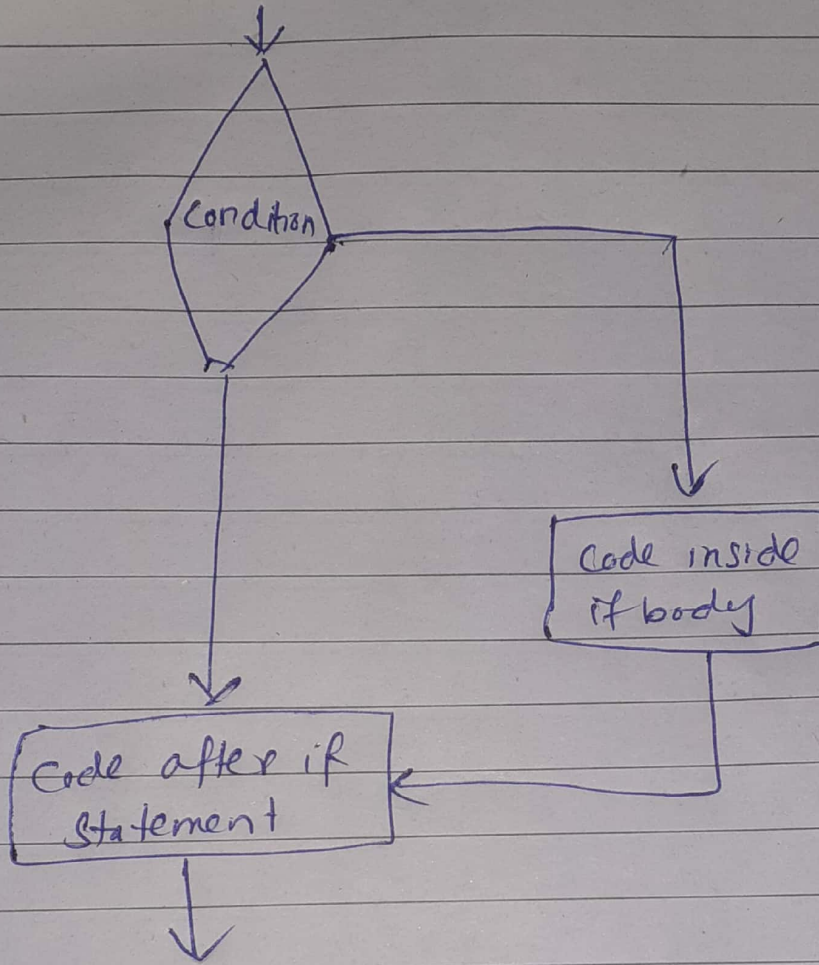 Condition
Code inside
if body
Code after if
Statement